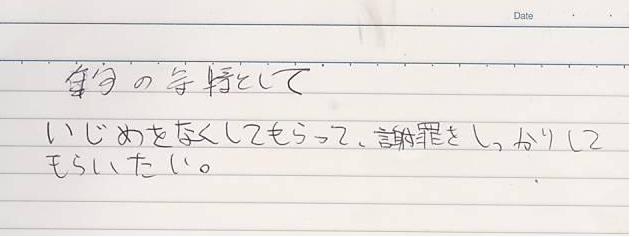 Date
自分の気持として
いじめをなくしてもらって、謝罪をしっかりして
もらいたい。